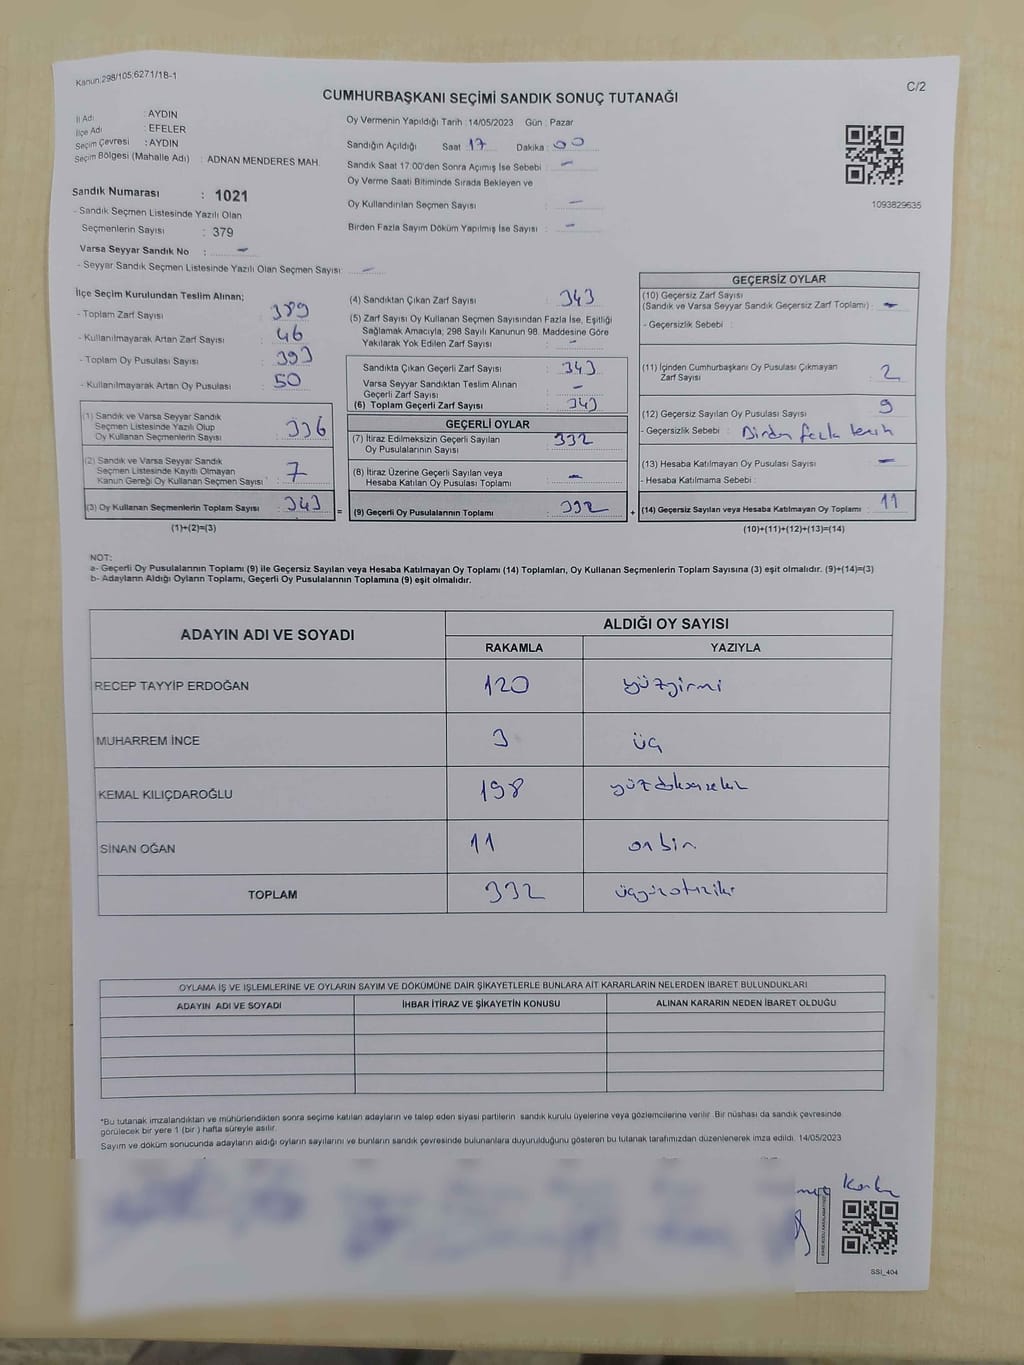 Kanun:298/105;6271/18-1
C/2
CUMHURBAŞKANI SEÇİMİ SANDIK SONUÇ TUTANAĞI
İl Adı : AYDIN
İlçe Adı : EFELER
Seçim Çevresi : AYDIN
Seçim Bölgesi (Mahalle Adı) : ADNAN MENDERES MAH.
Sandık Numarası : 1021
- Sandık Seçmen Listesinde Yazılı Olan
Seçmenlerin Sayısı : 379
Varsa Seyyar Sandık No : -
- Seyyar Sandık Seçmen Listesinde Yazılı Olan Seçmen Sayısı: -
Oy Vermenin Yapıldığı Tarih :14/05/2023 Gün : Pazar
Sandığın Açıldığı Saat : 17 Dakika : 00
Sandık Saat 17:00'den Sonra Açımış İse Sebebi : -
Oy Verme Saati Bitiminde Sırada Bekleyen ve
Oy Kullandırılan Seçmen Sayısı : -
Birden Fazla Sayım Döküm Yapılmış İse Sayısı : -
1093829635
İlçe Seçim Kurulundan Teslim Alınan;
- Toplam Zarf Sayısı : 389
- Kullanılmayarak Artan Zarf Sayısı : 46
- Toplam Oy Pusulası Sayısı : 393
- Kullanılmayarak Artan Oy Pusulası : 50
(1) Sandık ve Varsa Seyyar Sandık
Seçmen Listesinde Yazılı Olup
Oy Kullanan Seçmenlerin Sayısı : 336
(2) Sandık ve Varsa Seyyar Sandık
Seçmen Listesinde Kayıtlı Olmayan
Kanun Gereği Oy Kullanan Seçmen Sayısı : 7
(3) Oy Kullanan Seçmenlerin Toplam Sayısı : 343
(1)+(2)=(3)
(4) Sandıktan Çıkan Zarf Sayısı : 343
(5) Zarf Sayısı Oy Kullanan Seçmen Sayısından Fazla İse, Eşitliği
Sağlamak Amacıyla; 298 Sayılı Kanunun 98. Maddesine Göre
Yakılarak Yok Edilen Zarf Sayısı : -
Sandıkta Çıkan Geçerli Zarf Sayısı : 343
Varsa Seyyar Sandıktan Teslim Alınan
Geçerli Zarf Sayısı : -
(6) Toplam Geçerli Zarf Sayısı : 343
GEÇERLİ OYLAR
(7) İtiraz Edilmeksizin Geçerli Sayılan
Oy Pusulalarının Sayısı : 332
(8) İtiraz Üzerine Geçerli Sayılan veya
Hesaba Katılan Oy Pusulası Toplamı : -
= (9) Geçerli Oy Pusulalarının Toplamı : 332
GEÇERSİZ OYLAR
(10) Geçersiz Zarf Sayısı
(Sandık ve Varsa Seyyar Sandık Geçersiz Zarf Toplamı) : -
- Geçersizlik Sebebi :
(11) İçinden Cumhurbaşkanı Oy Pusulası Çıkmayan
Zarf Sayısı : 2
(12) Geçersiz Sayılan Oy Pusulası Sayısı : 9
- Geçersizlik Sebebi : Birden fazla tercih
(13) Hesaba Katılmayan Oy Pusulası Sayısı : -
- Hesaba Katılmama Sebebi :
+ (14) Geçersiz Sayılan veya Hesaba Katılmayan Oy Toplamı : 11
(10)+(11)+(12)+(13)=(14)
NOT:
a- Geçerli Oy Pusulalarının Toplamı (9) ile Geçersiz Sayılan veya Hesaba Katılmayan Oy Toplamı (14) Toplamları, Oy Kullanan Seçmenlerin Toplam Sayısına (3) eşit olmalıdır. (9)+(14)=(3)
b- Adayların Aldığı Oyların Toplamı, Geçerli Oy Pusulalarının Toplamına (9) eşit olmalıdır.
ADAYIN ADI VE SOYADI ALDIĞI OY SAYISI
RAKAMLA YAZIYLA
RECEP TAYYİP ERDOĞAN 120 yüzyirmi
MUHARREM İNCE 3 üç
KEMAL KILIÇDAROĞLU 198 yüzdoksansekiz
SİNAN OĞAN 11 onbir
TOPLAM 332 üçyüzotuziki
OYLAMA İŞ VE İŞLEMLERİNE VE OYLARIN SAYIM VE DÖKÜMÜNE DAİR ŞİKAYETLERLE BUNLARA AİT KARARLARIN NELERDEN İBARET BULUNDUKLARI
ADAYIN ADI VE SOYADI İHBAR İTİRAZ VE ŞİKAYETİN KONUSU ALINAN KARARIN NEDEN İBARET OLDUĞU
*Bu tutanak imzalandıktan ve mühürlendikten sonra seçime katılan adayların ve talep eden siyasi partilerin sandık kurulu üyelerine veya gözlemcilerine verilir. Bir nüshası da sandık çevresinde
görülecek bir yere 1 (bir) hafta süreyle asılır.
Sayım ve döküm sonucunda adayların aldığı oyların sayılarını ve bunların sandık çevresinde bulunanlara duyurulduğunu gösteren bu tutanak tarafımızdan düzenlenerek imza edildi. 14/05/2023
SSI_404